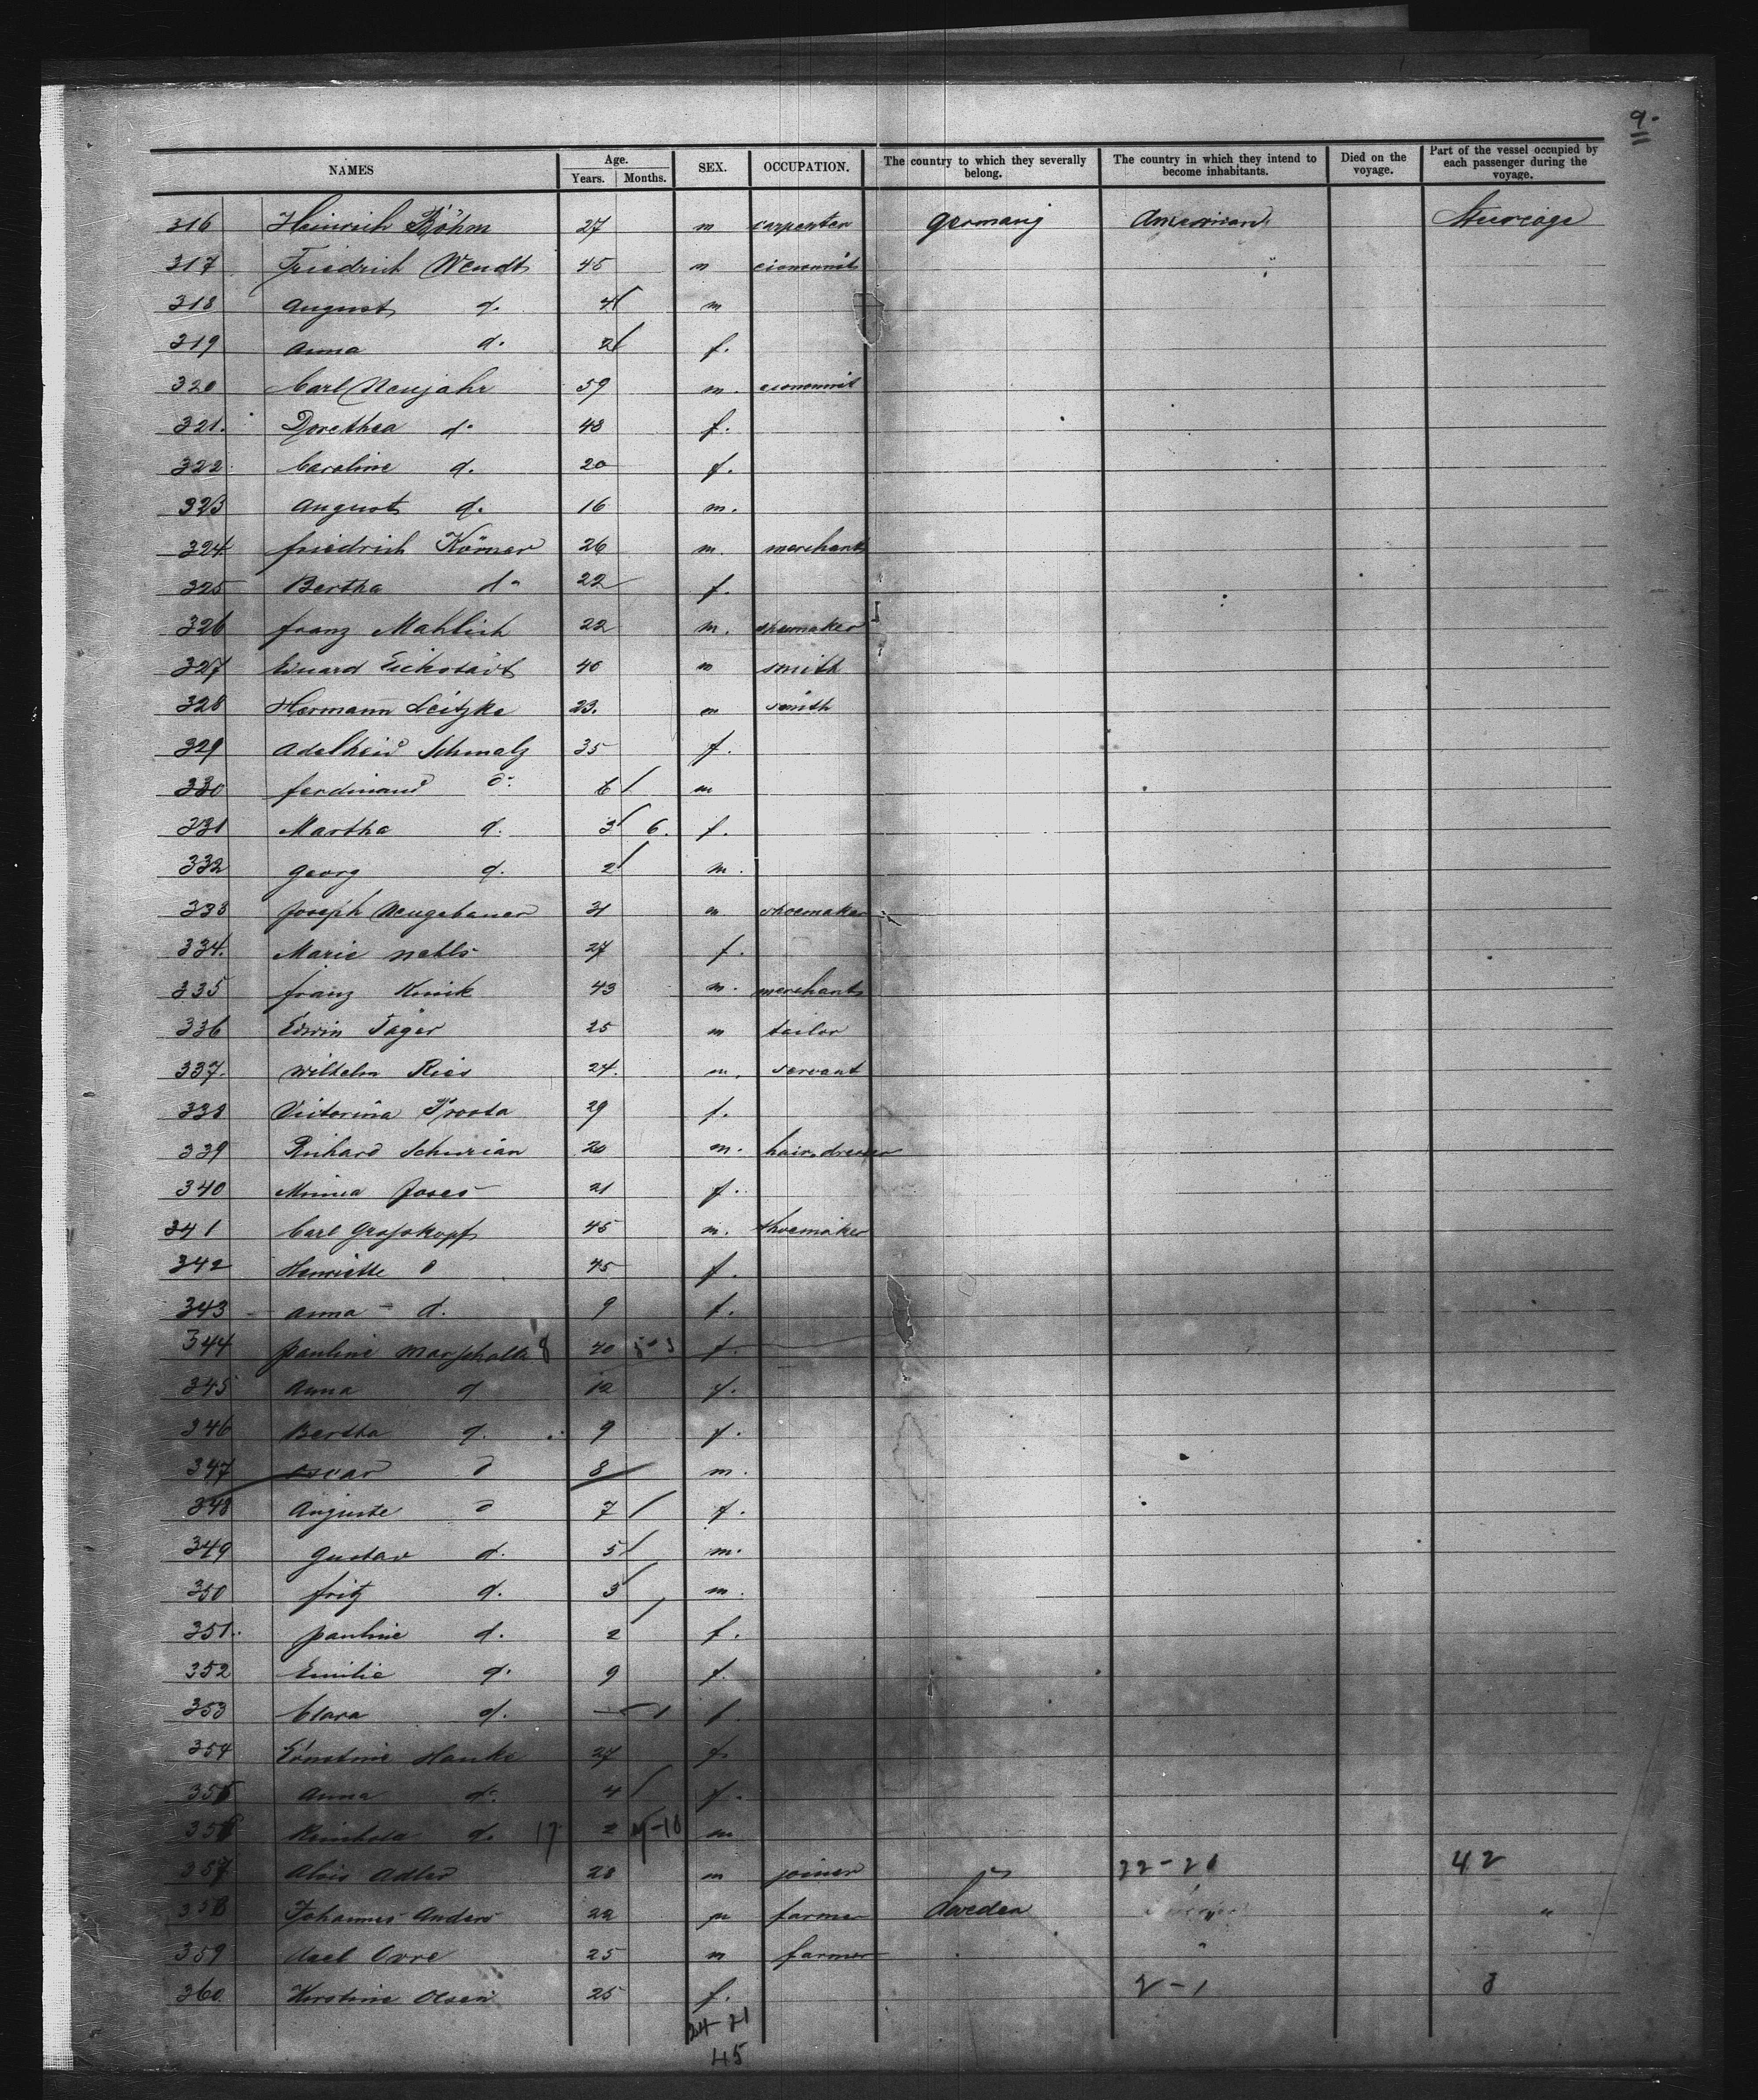 9.
NAMES Age. Years. Months. SEX. OCCUPATION. The country to which they severally belong. The country in which they intend to become inhabitants. Died on the voyage. Part of the vessel occupied by each passenger during the voyage.
316 Heinrich Böhm 27 m carpenter Germany American Steerage
317 Friedrich Wendt 45 m "
318 August d. 4 m
319 Anna d. 2 f.
320 Carl Neujahr 59 m.
321. Dorethea d. 48 f.
322. Caroline d. 20 f.
323 August d. 16 m.
324 Friedrich Körner 26 m. merchant
325 Bertha do 22 f.
326 Franz Mahlich 22 m.
327 Eduard Eickstädt 40 m smith
328 Hermann Leitzke 23. m smith
329 Adelheid Schmalz 35 f.
330 Ferdinand d. 6 m
331 Martha d. 3 6. f.
332 Georg d. 2 m.
333 Joseph Neugebauer 31 m shoemaker
334. Marie 27 f.
335 Franz 43 m. merchant
336 Edwin Jäger 25 m tailor
337. Wilhelm Ries 24. m. servant
338 29 f.
339 Richard Schurian 20 m. hairdresser
340 Minna 21 f.
341 Carl Grosskopf 45 m. shoemaker
342 Henriette d 45 f.
343 Anna d. 9 f.
344 Pauline 8 40 5-3 f.
345 Anna d 12 f.
346 Bertha d. 9 f.
347 Oscar d 8 m.
348 Auguste d 7 f.
349 Gustav d. 5 m.
350 Fritz d. 3 m.
351. Pauline d. 2 f.
352 Emilie d. 9 f.
353 Clara d. f.
354 Ernstine Hanke 27 f.
355 Anna do. 4 f.
356 Reinhold d. 17 2 m
357 Alois Adler 28 m joiner " 22-20 42
358 Johannes Anders 22 m farmer Sweden "
359 Axel 25 m farmer "
360. Kirstine Olsen 25 f. 2-1 3
24 21
45